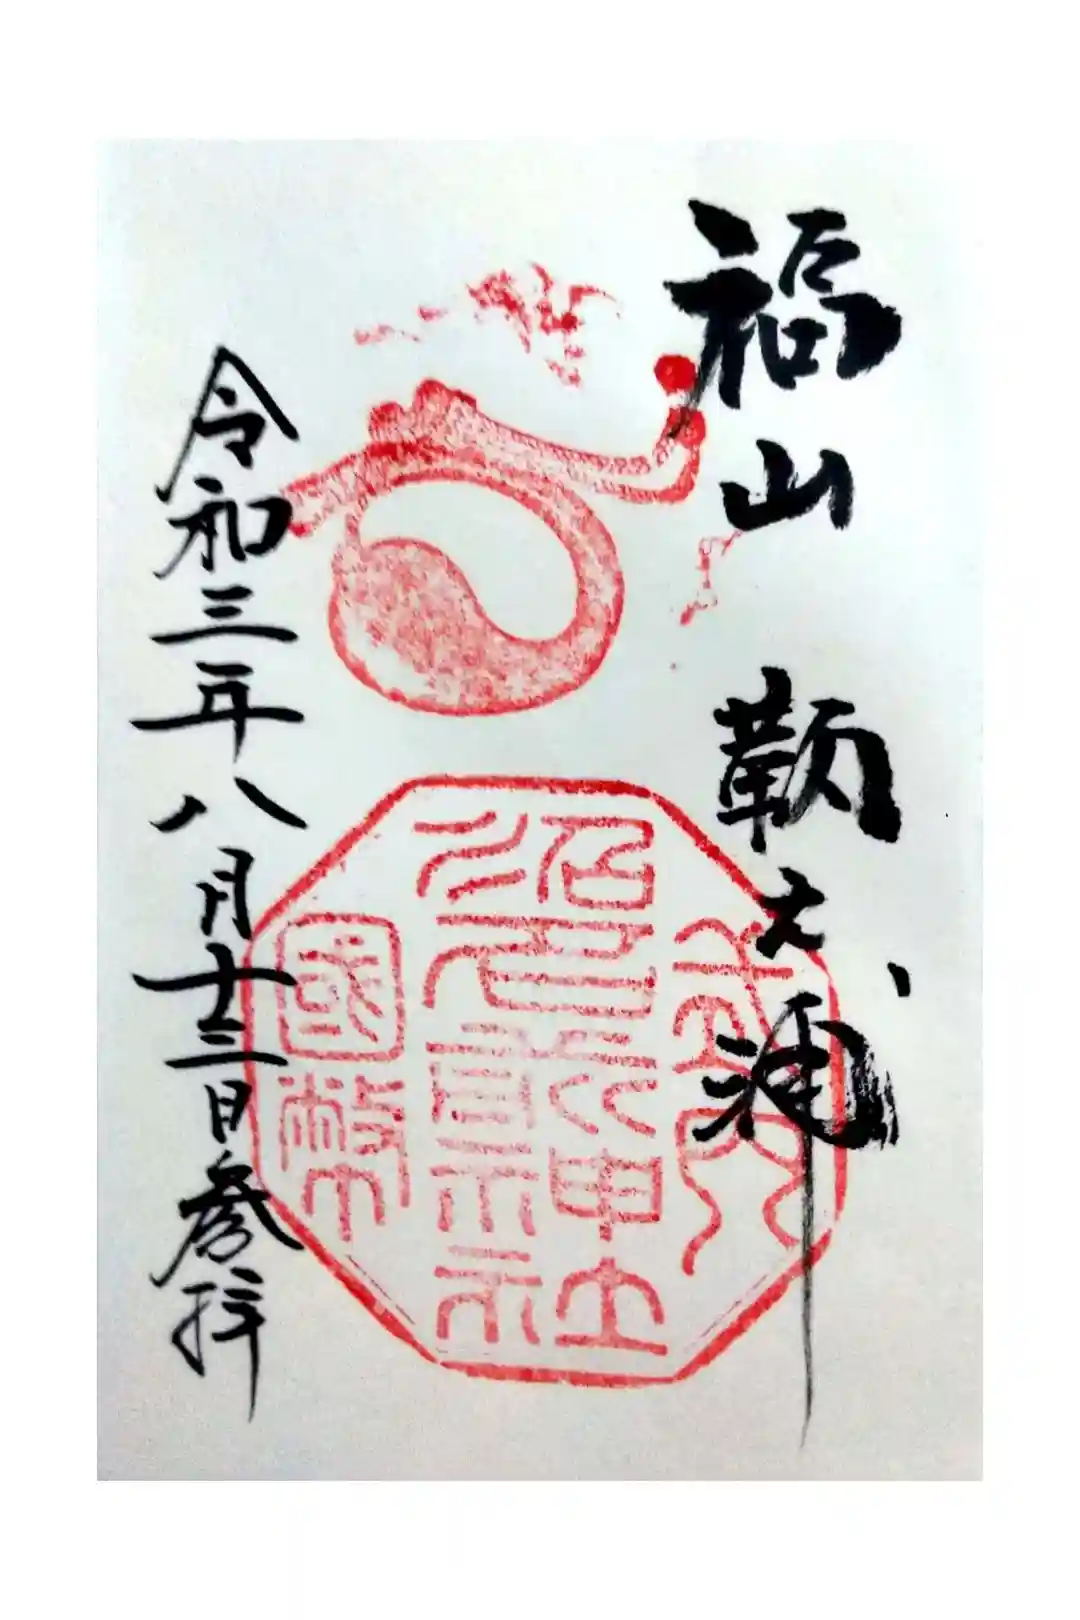 福山 鞆之浦
式内
沼名前神社
國幣
令和三年八月十三日参拝